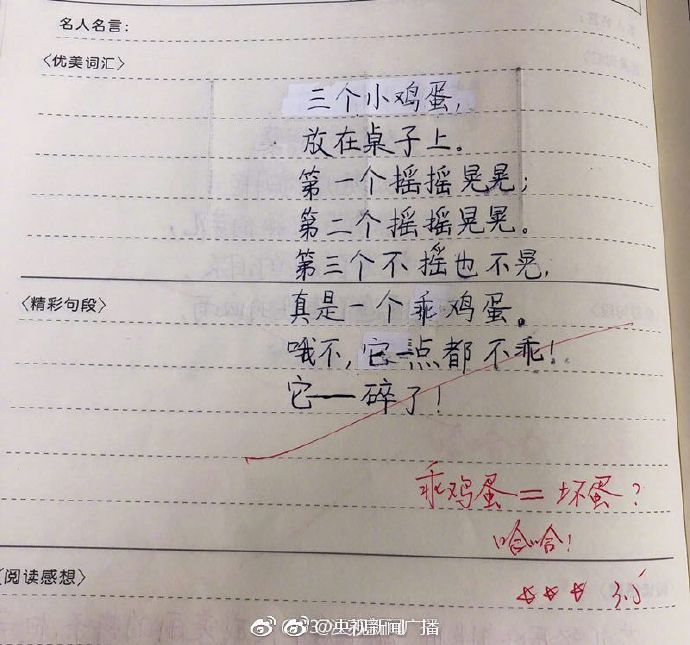 名人名言：
〈优美词汇〉
三个小鸡蛋，
放在桌子上。
第一个摇摇晃晃；
第二个摇摇晃晃。
第三个不摇也不晃，
〈精彩句段〉
真是一个乖鸡蛋。
哦不，它一点都不乖！
它——碎了！
乖鸡蛋＝坏蛋？
哈哈！
〈阅读感想〉
@央视新闻广播